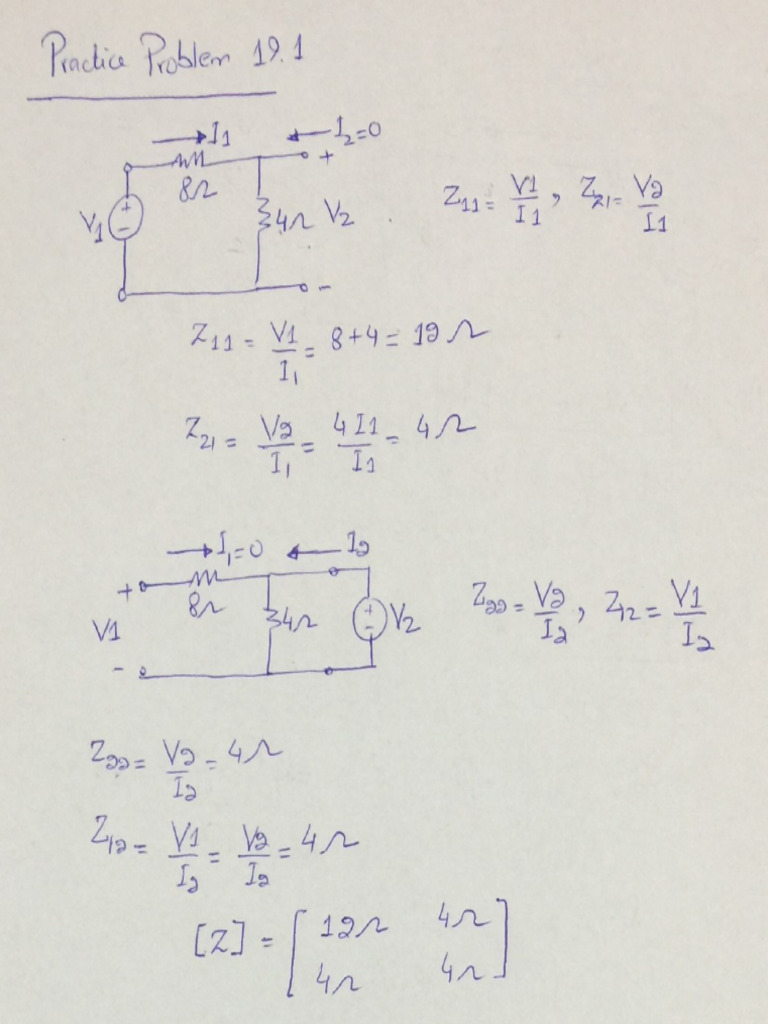 Practice Problem 19.1
I1 I2=0
8Ω +
V1 + - 4Ω V2
-
Z11 = V1/I1 , Z21 = V2/I1
Z11 = V1/I1 = 8+4 = 12Ω
Z21 = V2/I1 = 4I1/I1 = 4Ω
I1=0 I2
+ 8Ω
V1 4Ω + - V2
-
Z22 = V2/I2 , Z12 = V1/I2
Z22 = V2/I2 = 4Ω
Z12 = V1/I2 = V2/I2 = 4Ω
[Z] = [ 12Ω 4Ω
4Ω 4Ω ]